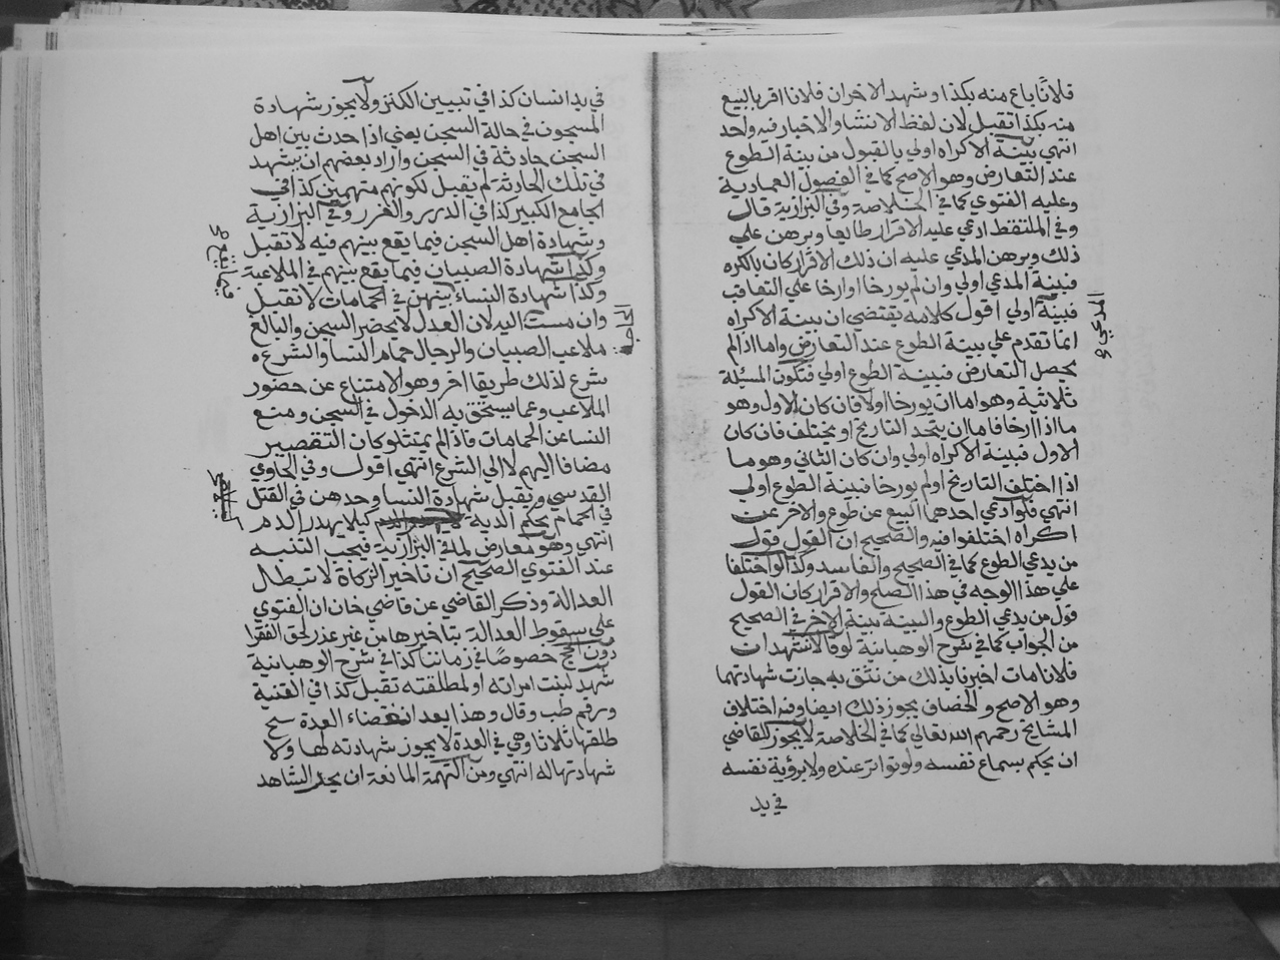 فلانا باع منه بكذا وشهد الاخران فلانا اقر بالبيع
منه بكذا تقبل لان لفظ الانشا والاخبار فيه واحد
انتهي بينة الاكراه اولي بالقبول من بينة الطوع
عند التعارض وهو الاصح كما في الفصول العمادية
وعليه الفتوي كما في الخلاصة وفي البزازية قال
وفي الملتقط ادعي عليه الاقرار طايعا وبرهن علي
ذلك وبرهن المدعي عليه ان ذلك الاقرار كان بالكره
فبينة المدعي اولي وان لم يورخا او ارخا علي التعاقب
فبينة اولي اقول كلامه يقتضي ان بينة الاكراه
انما تقدم علي بينة الطوع عند التعارض واما اذا لم
يحصل التعارض فبينة الطوع اولي فتكون المسئلة
ثلاثية وهو اما ان يورخا اولا فان كان الاول وهو
ما اذا ارخا فاما ان يتحد التاريخ او يختلف فان كان
الاول فبينة الاكراه اولي وان كان الثاني وهو ما
اذا اختلف التاريخ اولم يورخا فبينة الطوع اولي
انتهي فلو ادعي احدهما البيع عن طوع والاخر عن
اكراه اختلفوا فيه والصحيح ان القول قول
من يدعي الطوع كما في الصحيح والفاسد وكذا لو اختلفا
علي هذا الوجه في هذا الصلح والاقرار كان القول
قول من يدعي الطوع والبينة بينة الاخر في الصحيح
من الجواب كما في شرح الوهبانية لو قالا نشهد ان
فلانا مات اخبرنا بذلك من نثق به جازت شهادتهما
وهو الاصح والخصاف يجوز ذلك ايضا وفيه اختلاف
المشايخ رحمهم الله تعالي كما في الخلاصة لا يجوز للقاضي
ان يحكم بسماع نفسه ولو تواتر عنده ولا برؤية نفسه
في يد
المدعي
في يد انسان كذا في تبيين الكنز ولا يجوز شهادة
المسجون في حالة السجن يعني اذا حدث بين اهل
السجن حادثة في السجن واراد بعضهم ان يشهد
في تلك الحادثة لم تقبل لكونهم متهمين كذا في
الجامع الكبير كذا في الدرر والغرر وفي البزازية
وشهادة اهل السجن فيما يقع بينهم فيه لا تقبل
وكذا شهادة الصبيان فيما يقع بينهم في الملاعبة
وكذا شهادة النساء بينهن في الحمامات لا تقبل
وان مست اليه لان العدل لا يحضر السجن والبالغ
ملاعب الصبيان والرجال حمام النسا والشرع
شرع لذلك طريقا اخر وهو الامتناع عن حضور
الملاعب وعما يستحق به الدخول في السجن ومنع
النسا عن الحمامات فاذا لم يمتثلو كان التقصير
مضافا اليهم لا الي الشرع انتهي اقول وفي الحاوي
القدسي وتقبل شهادة النسا وحدهن في القتل
في الحمام بحكم الدية كيلا يهدر الدم
انتهي وهو معارض لما في البزازية فيجب التنبه
عند الفتوي الصحيح ان تاخير الزكاة لا تبطل
العدالة وذكر القاضي عن قاضي خان ان الفتوي
علي سقوط العدالة بتاخيرها من غير عذر لحق الفقرا
دون الحج خصوصا في زماننا كذا في شرح الوهبانية
شهد لبنت امراته او لمطلقته تقبل كذا في القنية
ورقم طب وقال وهذا بعد انقضاء العدة سج
طلقها ثلاثا وهي في العدة لا يجوز شهادته لها ولا
شهادتها له انتهي ومن التهمة المانعة ان يجر الشاهد
فيما يقع